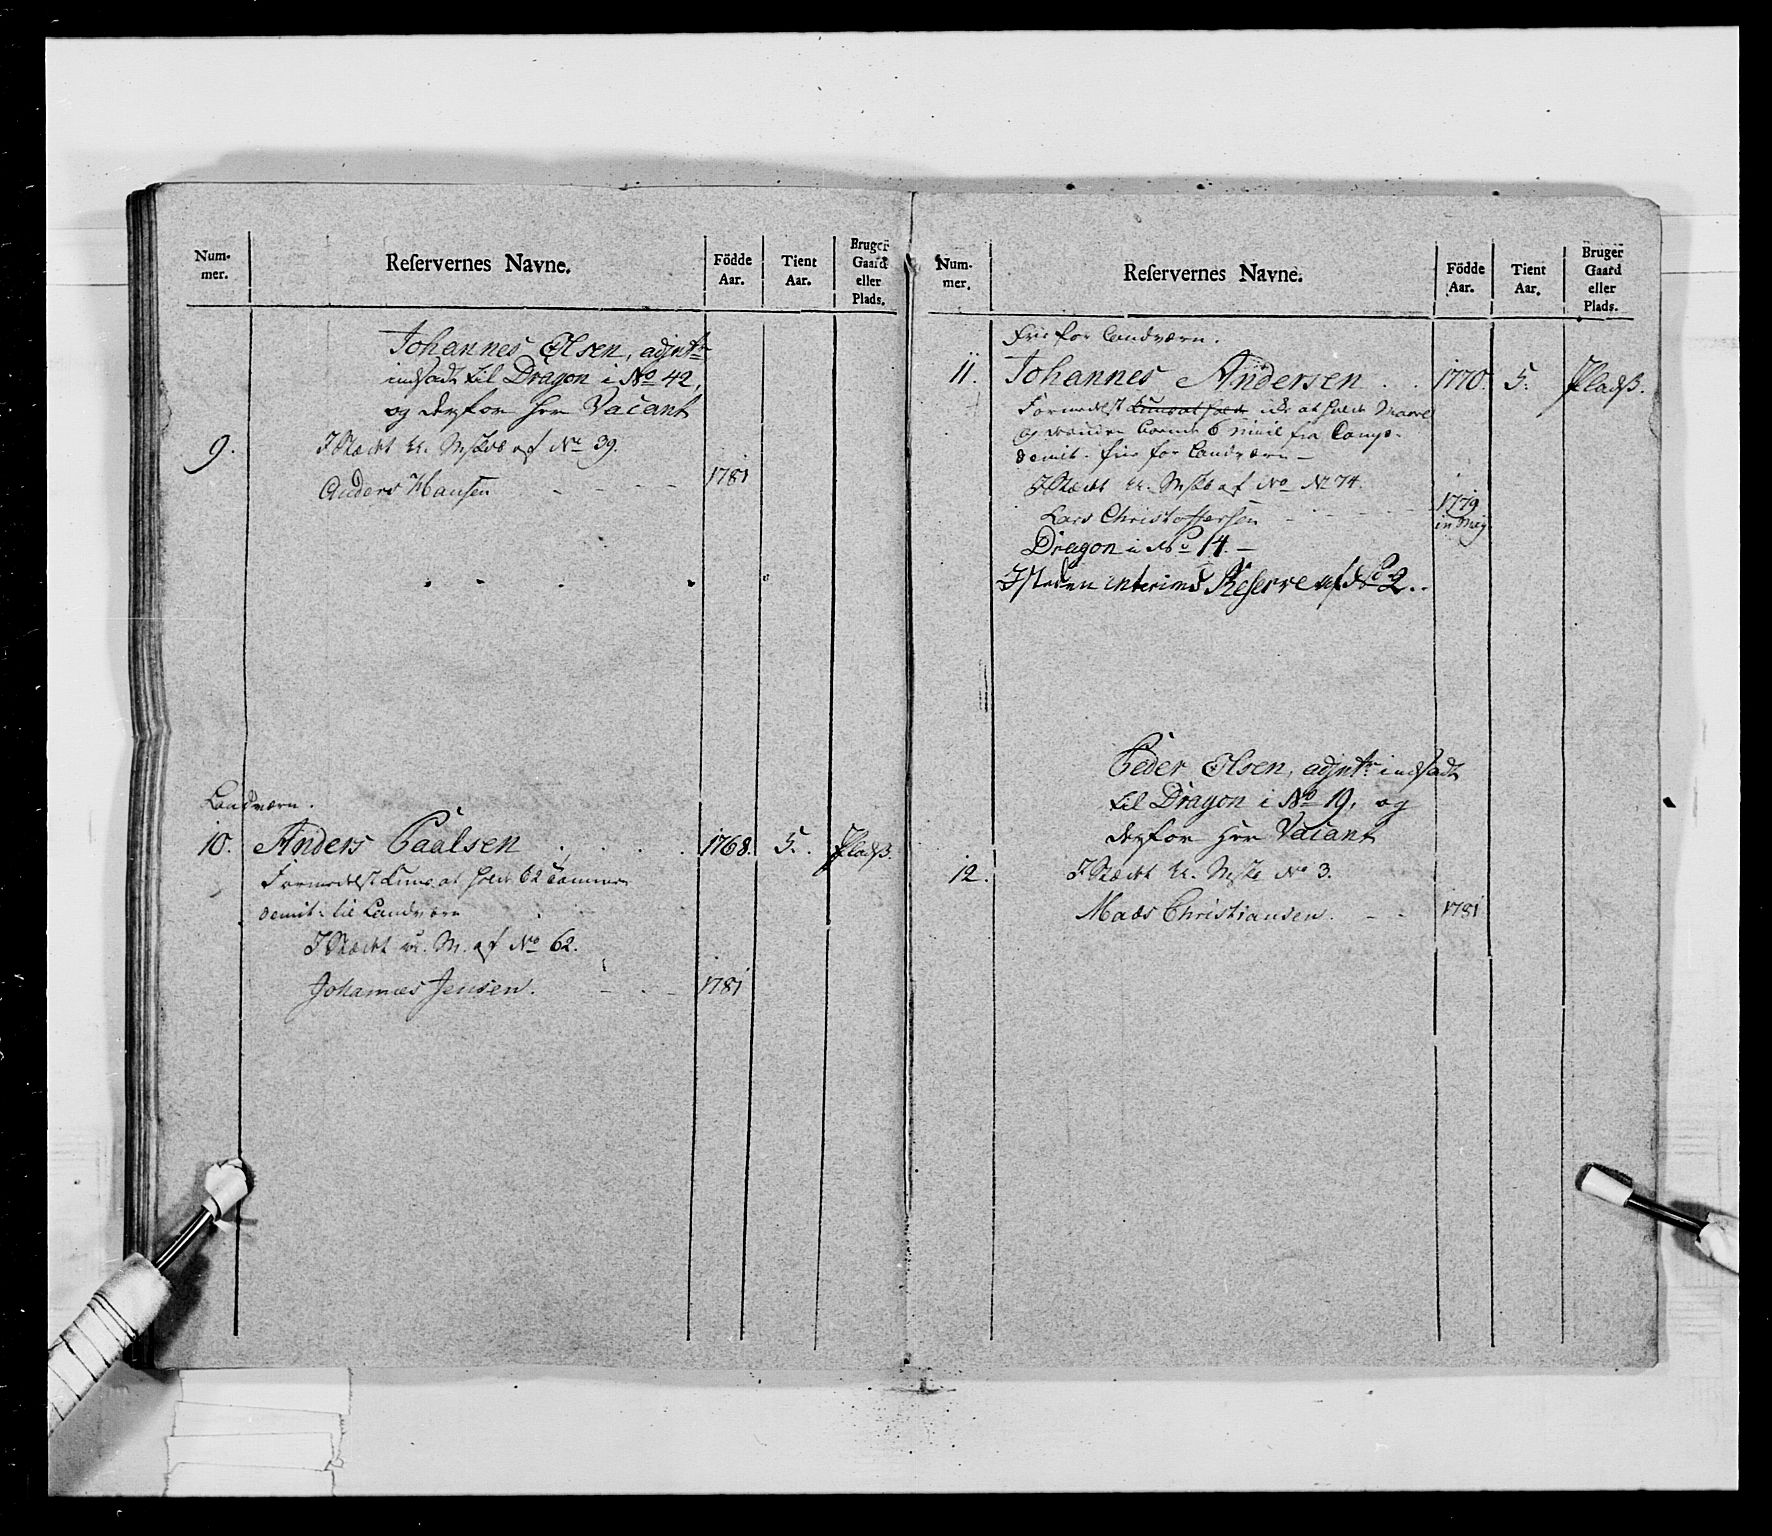 Num-
mer.
Reſervernes Navne.
Födde
Aar.
Tient
Aar.
Bruger
Gaard
eller
Plads.
Johannes Olsen, adjntr
indsadt til Dragon i No 42,
og derfor her Vacant
9. I Stædet af No 39.
Anders Hansen 1781
Landværn.
10. Anders Paalsen 1768. 5. Pladß.
Formedelst at holde 62 Tommer
demit: til Landværn
I Stædet M. af No 62.
Johannes Jensen. 1781
Num-
mer.
Reſervernes Navne.
Födde
Aar.
Tient
Aar.
Bruger
Gaard
eller
Plads.
Frie for Landværn.
11. Johannes Andersen 1770. 5. Pladß.
Formedelst at holde Maal
og 6 Miil fra Comp.
demit. frie for Landværn
I Stædet af No 74.
Lars Christoffersen 1779
in Maj
Dragon i No 14.
Isteden interims Reserve af No 2.
Peder Olsen, adjntr indsadt
til Dragon i No 19, og
derfor her Vacant
12. I Stædet No 3.
Mads Christiansen. 1781